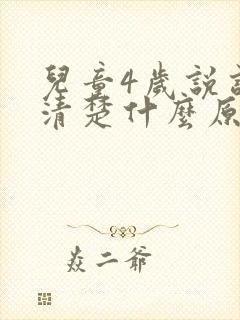 兒童4歲說
清楚什麼原
焱二爺